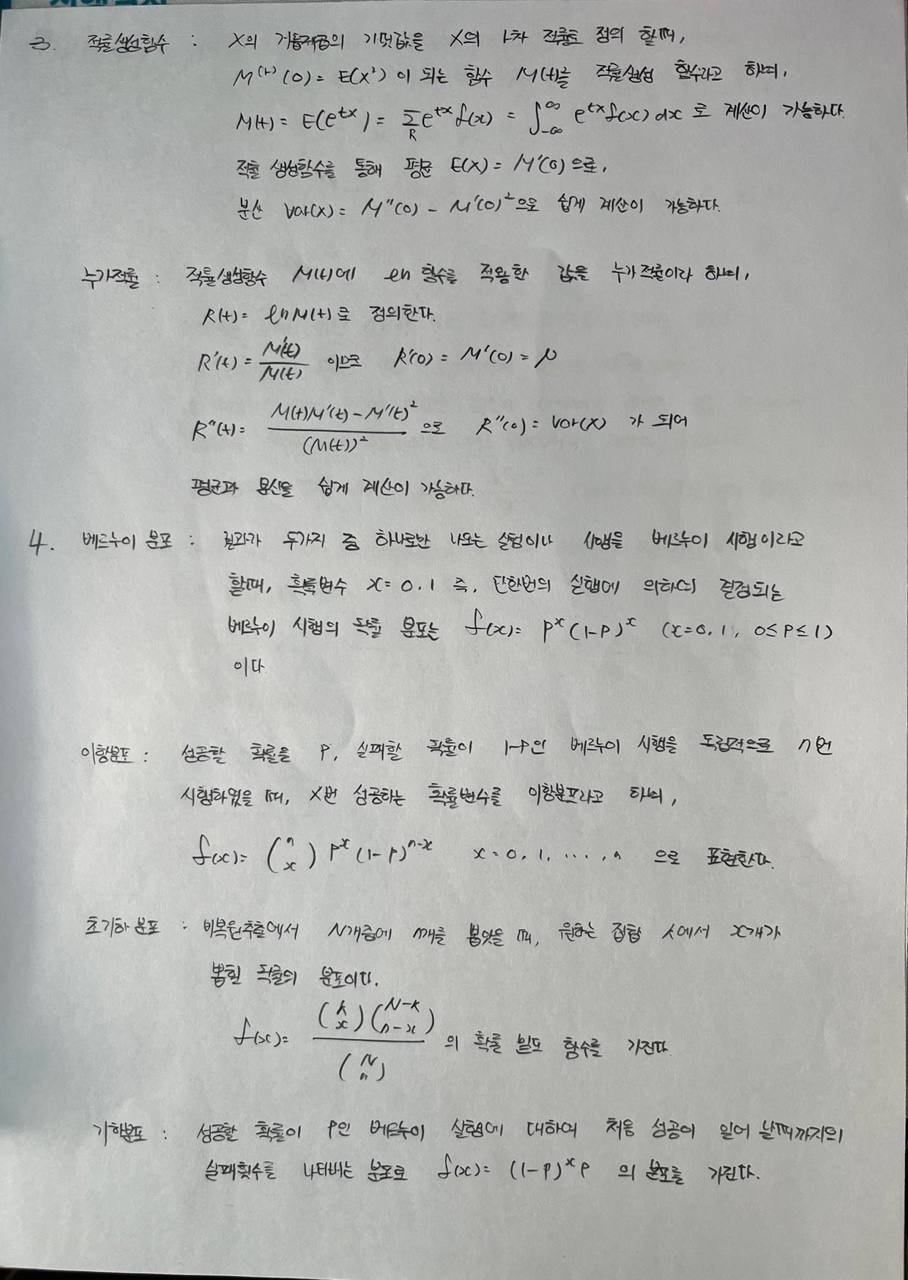 3. 적률생성함수 : X의 거듭제곱의 기댓값을 X의 r차 적률로 정의 할때,
M⁽ʳ⁾(0) = E(Xʳ) 이 되는 함수 M(t)를 적률생성 함수라고 하며,
M(t) = E(eᵗˣ) = Σ_R eᵗˣ f(x) = ∫_{-∞}^{∞} eᵗˣ f(x) dx 로 계산이 가능하다.
적률 생성함수를 통해 평균 E(X) = M'(0) 으로,
분산 Var(X) = M''(0) - M'(0)² 으로 쉽게 계산이 가능하다.
누가적률 : 적률생성함수 M(t)에 ln 함수를 적용한 값을 누가적률이라 하며,
R(t) = ln M(t) 로 정의한다.
R'(t) = M'(t) / M(t) 이므로 R'(0) = M'(0) = μ
R''(t) = (M(t)M''(t) - M'(t)²) / (M(t))² 으로 R''(0) = Var(X) 가 되어
평균과 분산을 쉽게 계산이 가능하다.
4. 베르누이 분포 : 결과가 두가지 중 하나로만 나오는 실험이나 시행을 베르누이 시행이라고
할때, 확률변수 x = 0, 1 즉, 단한번의 실험에 의하여 결정되는
베르누이 시행의 확률 분포는 f(x) = pˣ(1-p)ˣ (x=0, 1, 0≤p≤1)
이다
이항분포 : 성공할 확률을 p, 실패할 확률이 1-p인 베르누이 시행을 독립적으로 n번
시행하였을 때, X번 성공하는 확률변수를 이항분포라고 하며,
f(x) = (n x) pˣ (1-p)ⁿ⁻ˣ x = 0, 1, ····, n 으로 표현한다.
초기하 분포 : 비복원추출에서 N개중에 n개를 뽑았을 때, 원하는 집합 에서 x개가
뽑힐 확률의 분포이다.
f(x) = (k x)(N-k n-x) / (N n) 의 확률 밀도 함수를 가진다
기하분포 : 성공할 확률이 p인 베르누이 실험에 대하여 처음 성공이 일어 날때까지의
실패횟수를 나타내는 분포로 f(x) = (1-p)ˣp 의 분포를 가진다.